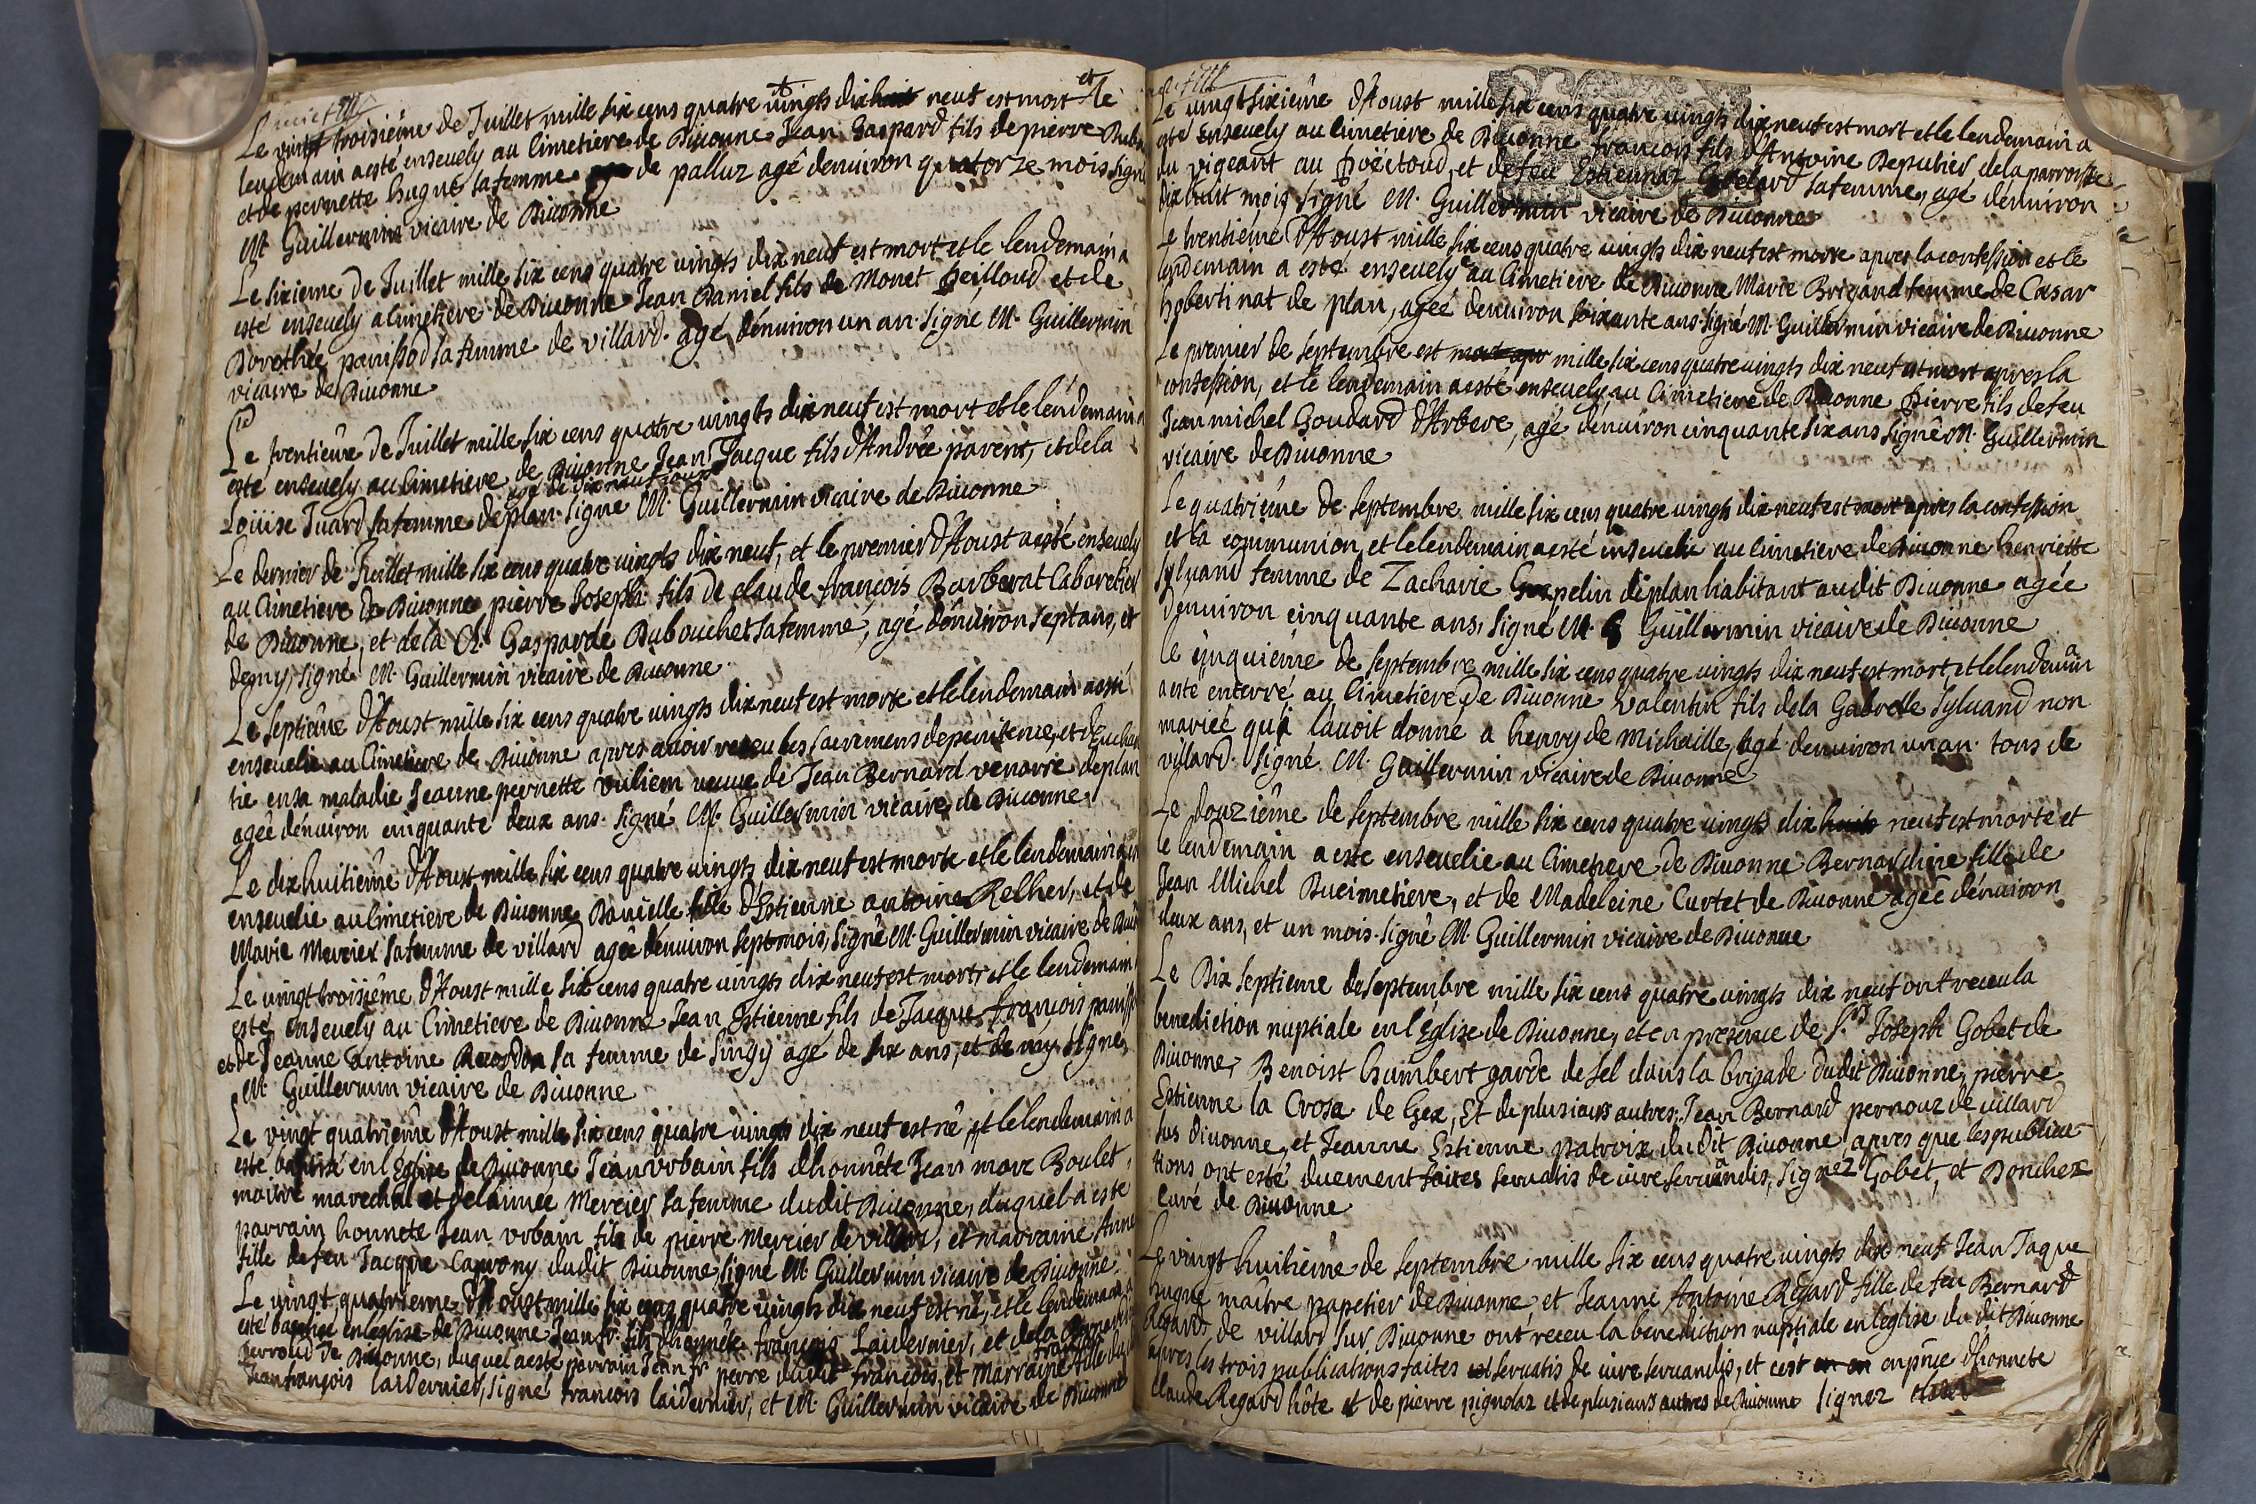 Le vingt troisieme de Juillet mille six cens quatre vingts dix huit neuf est mort et le
lendemain a esté ensevely au Cimetiere de Divonne Jean Gaspard fils de pierre
et de pernette hugue sa femme de palluz agé denviron quatorze mois signé
M. Guillermin vicaire de Divonne
Le sixieme de Juillet mille six cens quatre vingts dix neuf est mort et le lendemain a
esté ensevely a Cimetiere de Divonne Jean Daniel fils de Monet peilloud et de
Dorothée panissod sa femme de villard. agé dénviron un an. signé M. Guillermin
vicaire de Divonne
Le trentiéme de Juillet mille six cens quatre vingts dix neuf est mort et le lendemain a
esté ensevely au Cimetiere de Divonne Jean Jacque fils d'Andrée parent, et de la
agé de dix neuf jours
Loüise Juard sa femme de plan. signé M. Guillermin vicaire de Divonne
Le dernier de Juillet mille six cens quatre vingts dix neuf, et le premier d'Aoust a esté ensevely
au Cimetiere de Divonne pierre Joseph fils de claude françois Barberat Cabaretier
de Divonne, et de la Gasparde Dubouchet sa femme, agé dénviron sept ans, et
demy, signé M. Guillermin vicaire de Divonne.
Le septiéme d'Aoust mille six cens quatre vingts dix neuf est morte et le lendemain a esté
ensevelie au Cimetiere de Divonne apres avoir receu les sacremens de penitence, et d'Euchari
tie en sa maladie Jeanne pernette vuliem veuve de Jean Bernard venarre de plan
agée dénviron cinquante deux ans. signé M. Guillermin vicaire de Divonne
Le dix huitiéme d'Aoust mille six cens quatre vingts dix neuf est morte et le lendemain a
ensevelie au Cimetiere de Divonne Danielle fille d'Estienne antoine Relher, et de
Marie Mercier sa femme de villard agée dénviron sept mois, signé M. Guillermin vicaire de
Le vingt troisiéme d'Aoust mille six cens quatre vingts dix neuf est mort, et le lendemain
esté ensevely au Cimetiere de Divonne Jean Estienne fils de Jacque françois
et de Jeanne Antoine Recordon sa femme de Singy agé de six ans, et demy signé
M. Guillermin vicaire de Divonne
Le vingt quatriéme d'Aoust mille six cens quatre vingts dix neuf est né, et le lendemain a
esté baptisé en l'Eglise de Divonne Jean vrbain fils dhonnête Jean marc Boulet,
maitre marechal et de laimée Mercier sa femme dudit Divonne, duquel a este
parrain honnete Jean vrbain fils de pierre Mercier de villard, et marraine Anne
fille de feu Jacque Carrony dudit Divonne, signé M. Guillermin vicaire de Divonne.
Le vingt quatrieme d'Aoust mille six cens quatre vingts dix neuf est né, et le lendemain a
esté baptisé en l'eglise de Divonne Jean fr. fils d'honnête françois Laidernier, et de la
perroud de Divonne, duquel a esté parrain Jean fr. pierre dudit françois, et Marraine fille du
Jean françois laidernier, signé francois laidernier, et M. Guillermin vicaire de Divonne
Le vingtsixiéme d'Aoust mille six cens quatre vingts dix neuf est mort et le lendemain a
esté ensevely au Cimetiere de Divonne francois fils d'Antoine de la parroisse
du vigeant au poictoud, et de feu sa femme, agé dénviron
dix huit mois signé M. Guillermin vicaire de Divonne
Le trentiéme d'Aoust mille six cens quatre vingts dix neuf est morte apres la confession et le
lendemain a esté ensevelye au Cimetiere de Divonne Marie Brigand femme de Cæsar
hobertinat de plan, agée denviron soixante ans. signé M. Guillermin vicaire de Divonne
Le premier de septembre est mille six cens quatre vingts dix neuf est mort apres la
confession, et le lendemain a esté ensevely au Cimetiere de Divonne pierre fils de feu
Jean michel Goudard d'Arbere, agé dénviron cinquante six ans signé M. Guillermin
vicaire de Divonne
Le quatriéme de septembre mille six cens quatre vingts dix neuf est mort apres la confession
et la communion, et le lendemain a esté ensevelie au Cimetiere de Divonne henriette
Sylvand femme de Zacharie Grospelin de plan habitant audit Divonne agée
dénviron cinquante ans, signé M. Guillermin vicaire de Divonne
Le cinquiéme de septembre mille six cens quatre vingts dix neuf est mort, et le lendemain
a esté enterré au Cimetiere de Divonne valentin fils de la Gabrelle Sylvand non
mariée qui lavoit donné a henry de Michaille, agé denviron un an. tous de
villard. signé M. Guillermin vicaire de Divonne
Le douziéme de septembre mille six cens quatre vingts dix huit neuf est morte et
le lendemain a este ensevelie au Cimetiere de Divonne Bernardine fille de
Jean Michel Ducimetiere, et de Madeleine Curtet de Divonne agée dénviron
deux ans, et un mois. signé M. Guillermin vicaire de Divonne
Le Dix septieme de septembre mille six cens quatre vingts dix neuf ont receu la
benediction nuptiale en l'Église de Divonne, et en presence de Sr. Joseph Gobet de
Divonne, Benoist humbert garde de sel dans la brigade dudit Divonne, pierre
Estienne la Crosa de Gex, Et de plusieurs autres, Jean Bernard pernouz de villard
sus divonne, et Jeanne Estienne patroix dudit Divonne, apres que les publica
tions ont esté duement faites servatis de iure servandis, signez Gobet, et Donchez
Curé de Divonne
Le vingt huitiéme de septembre mille six cens quatre vingts dix neuf Jean Jaque
hugue maître papetier de Divonne, et Jeanne Antoine Regard fille de feu Bernard
Regard, de villard sur Divonne ont receu la benediction nuptiale en l'église du dit Divonne
apres les trois publications faites servatis de iure servandis, et c'est en pñce d'honnete
claude Regard hôte et de pierre pignolaz et de plusieurs autres de Divonne signez